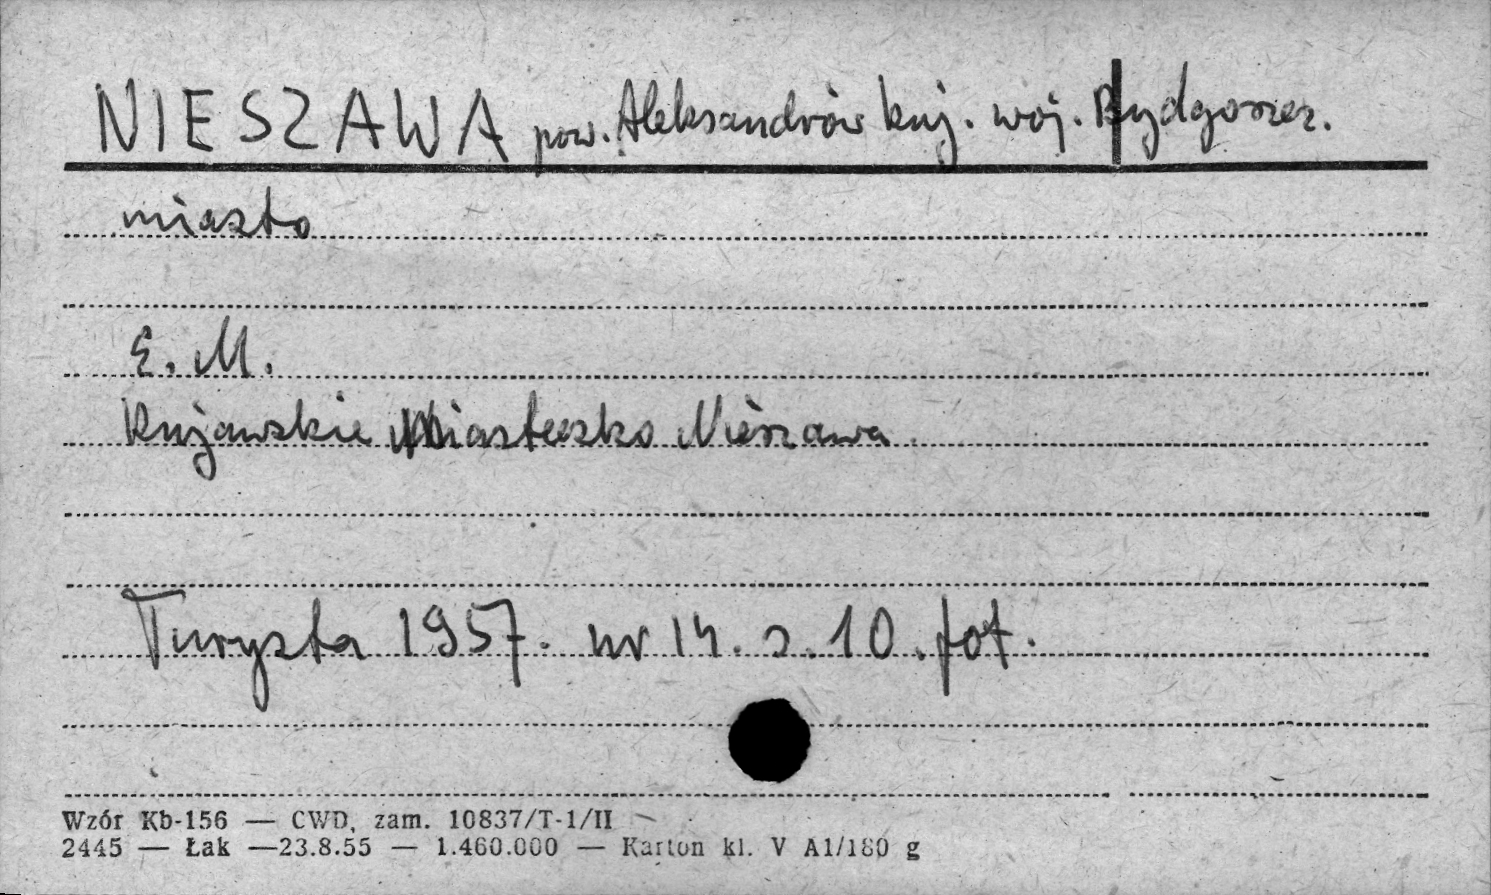 NIESZAWA pow. Aleksandrów kuj. woj. Bydgoszcz.
miasto
E. M.
Kujawskie Miasteczko Nieszawa.
Turysta 1957. nr 14. s. 10. fot.
Wzór Kb-156 — CWD, zam. 10837/T-1/II
2445 — Łak —23.8.55 — 1.460.000 — Karton kl. V A1/180 g